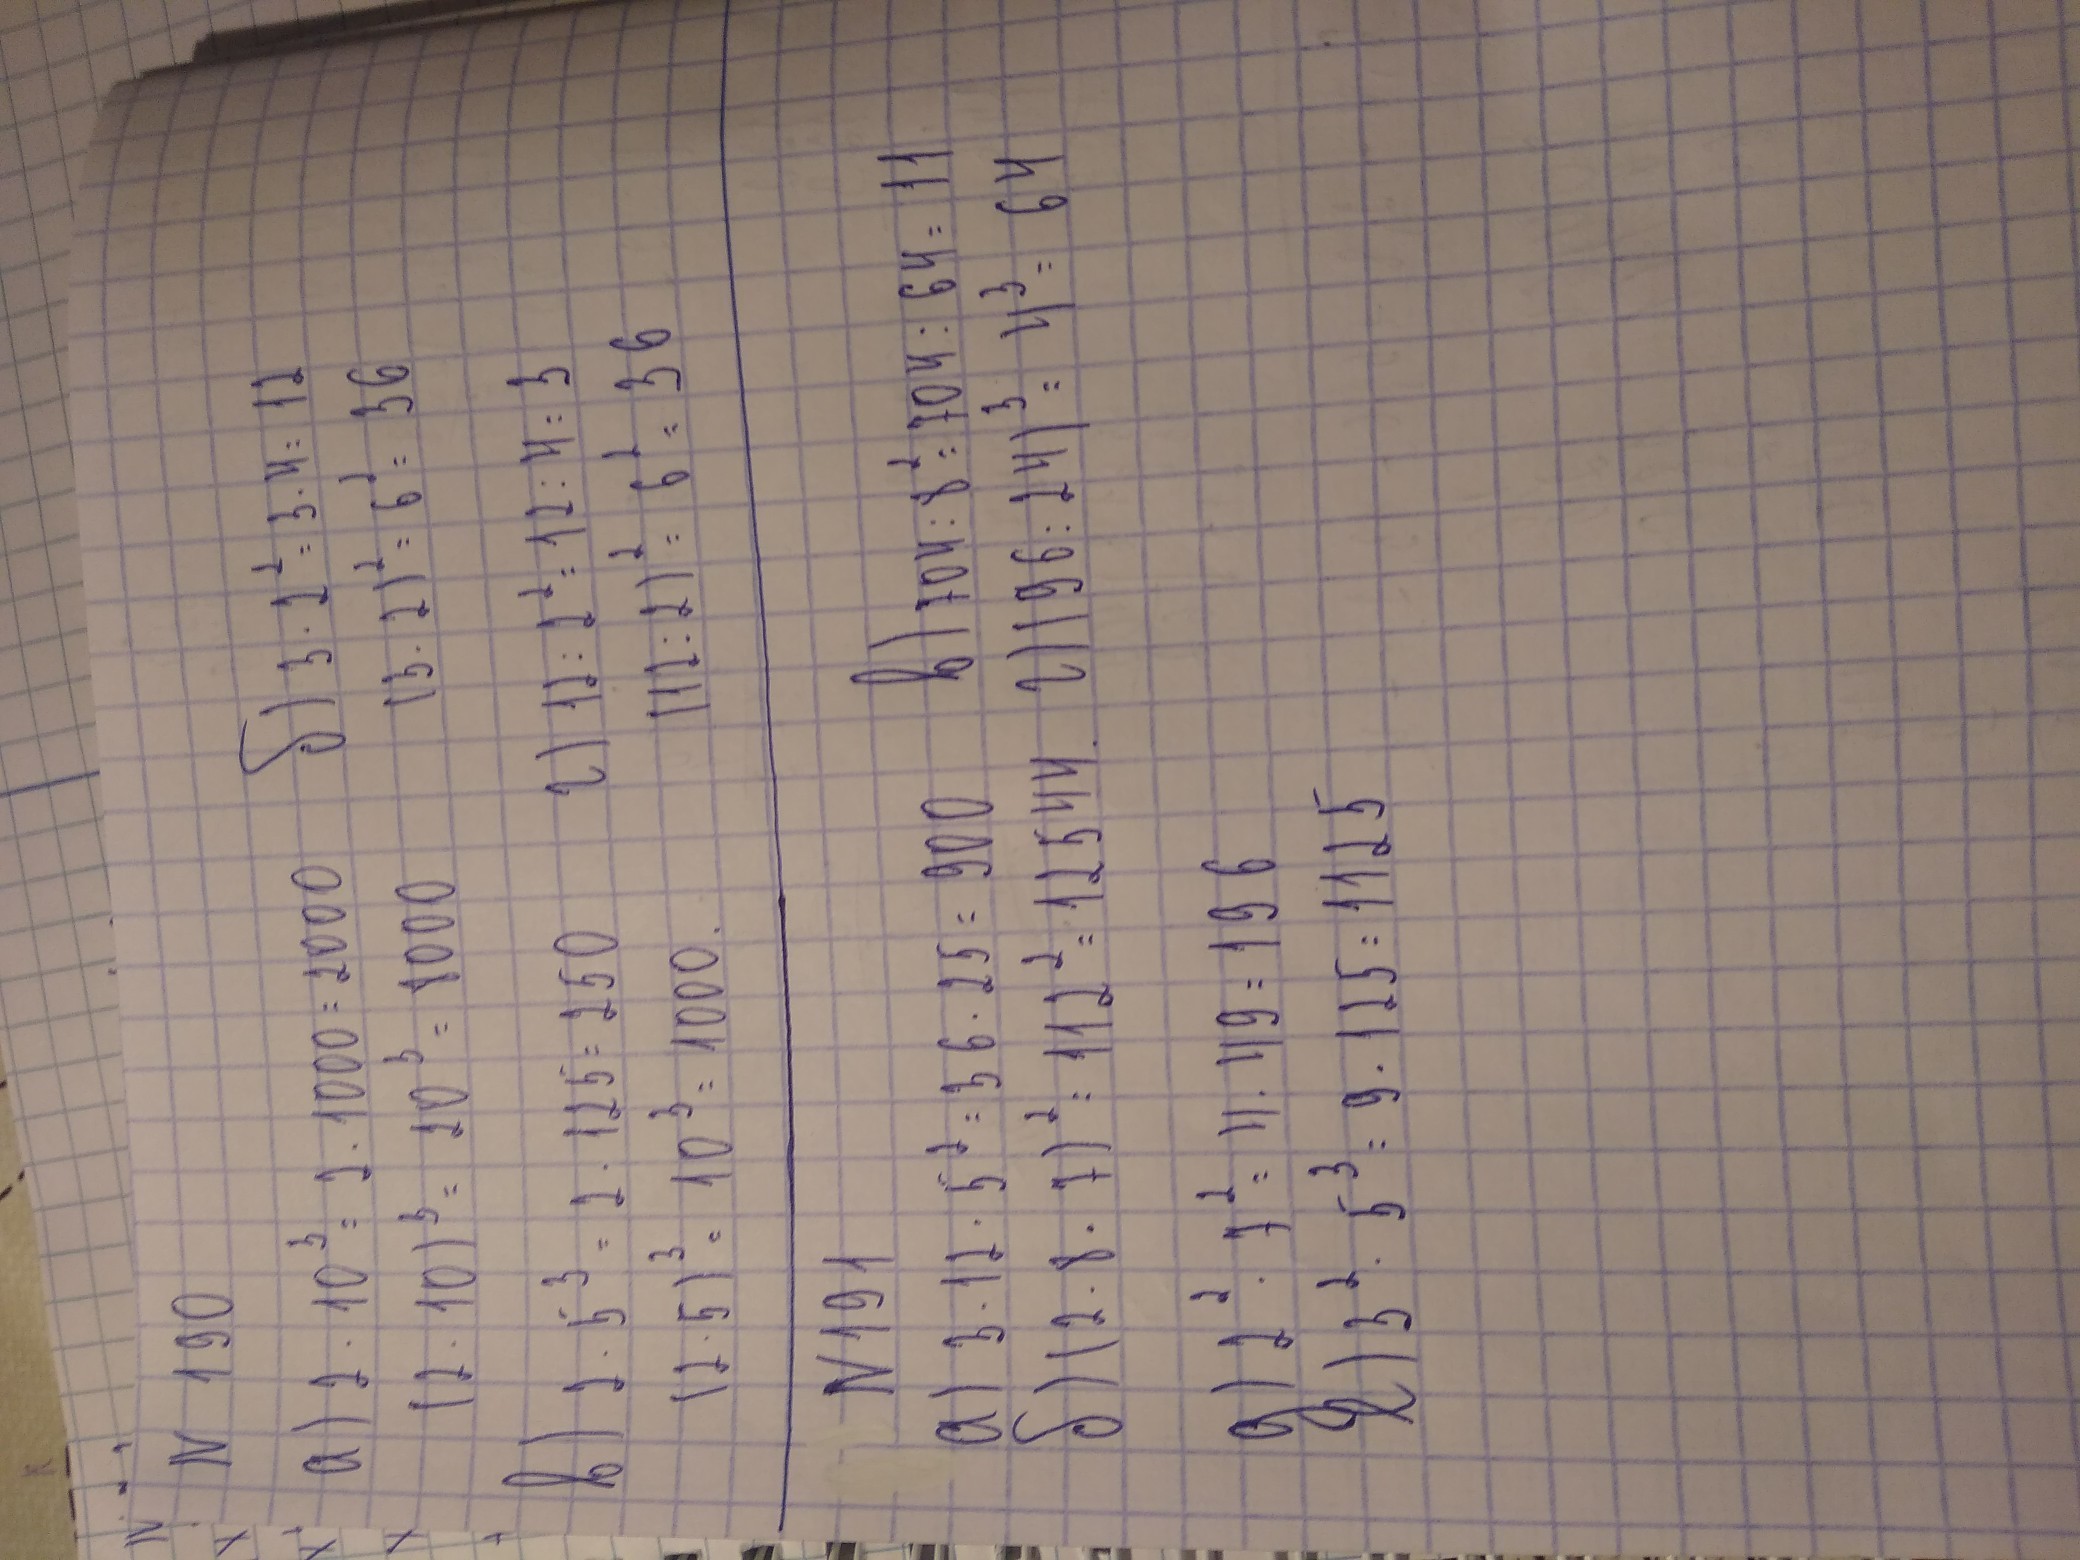 N 190
а) 2 · 10³ = 2 · 1000 = 2000
(2 · 10)³ = 20³ = 1000
б) 3 · 2² = 3 · 4 = 12
(3 · 2)² = 6² = 36
в) 2 · 5³ = 2 · 125 = 250
(2 · 5)³ = 10³ = 1000.
г) 12 : 2² = 12 : 4 = 3
(12 : 2)² = 6² = 36
N 191
а) 3 · 12 · 5² = 36 · 25 = 900
б) (2 · 8 · 7)² = 112² = 12544.
в) 704 : 8² = 704 : 64 = 11
г) (196 : 14)³ = 4³ = 64
д) 2² · 7² = 4 · 49 = 196
е) 3² · 5³ = 9 · 125 = 1125